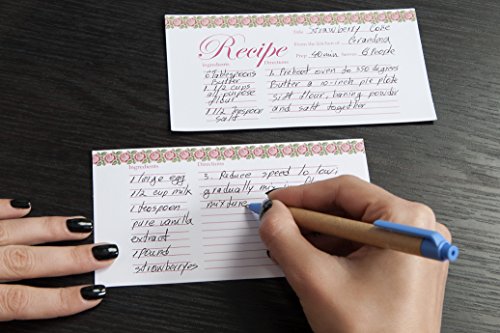 Recipe
Title Strawberry Cake
From the kitchen of Grandma
Prep 40min Serves 6 People
Ingredients
6 tablespoons
Butter
1 1/2 cups
all purpose
flour
1 1/2 teaspoon
salt
Directions
1. Preheat oven to 350 degrees
Butter a 10-inch pie plate
Sift flour, baking powder
and salt together
Ingredients
1 large egg
1/2 cup milk
1 teaspoon
pure vanilla
extract
1 Pound
strawberries
Directions
3. Reduce speed to low;
gradually mix in
mixture